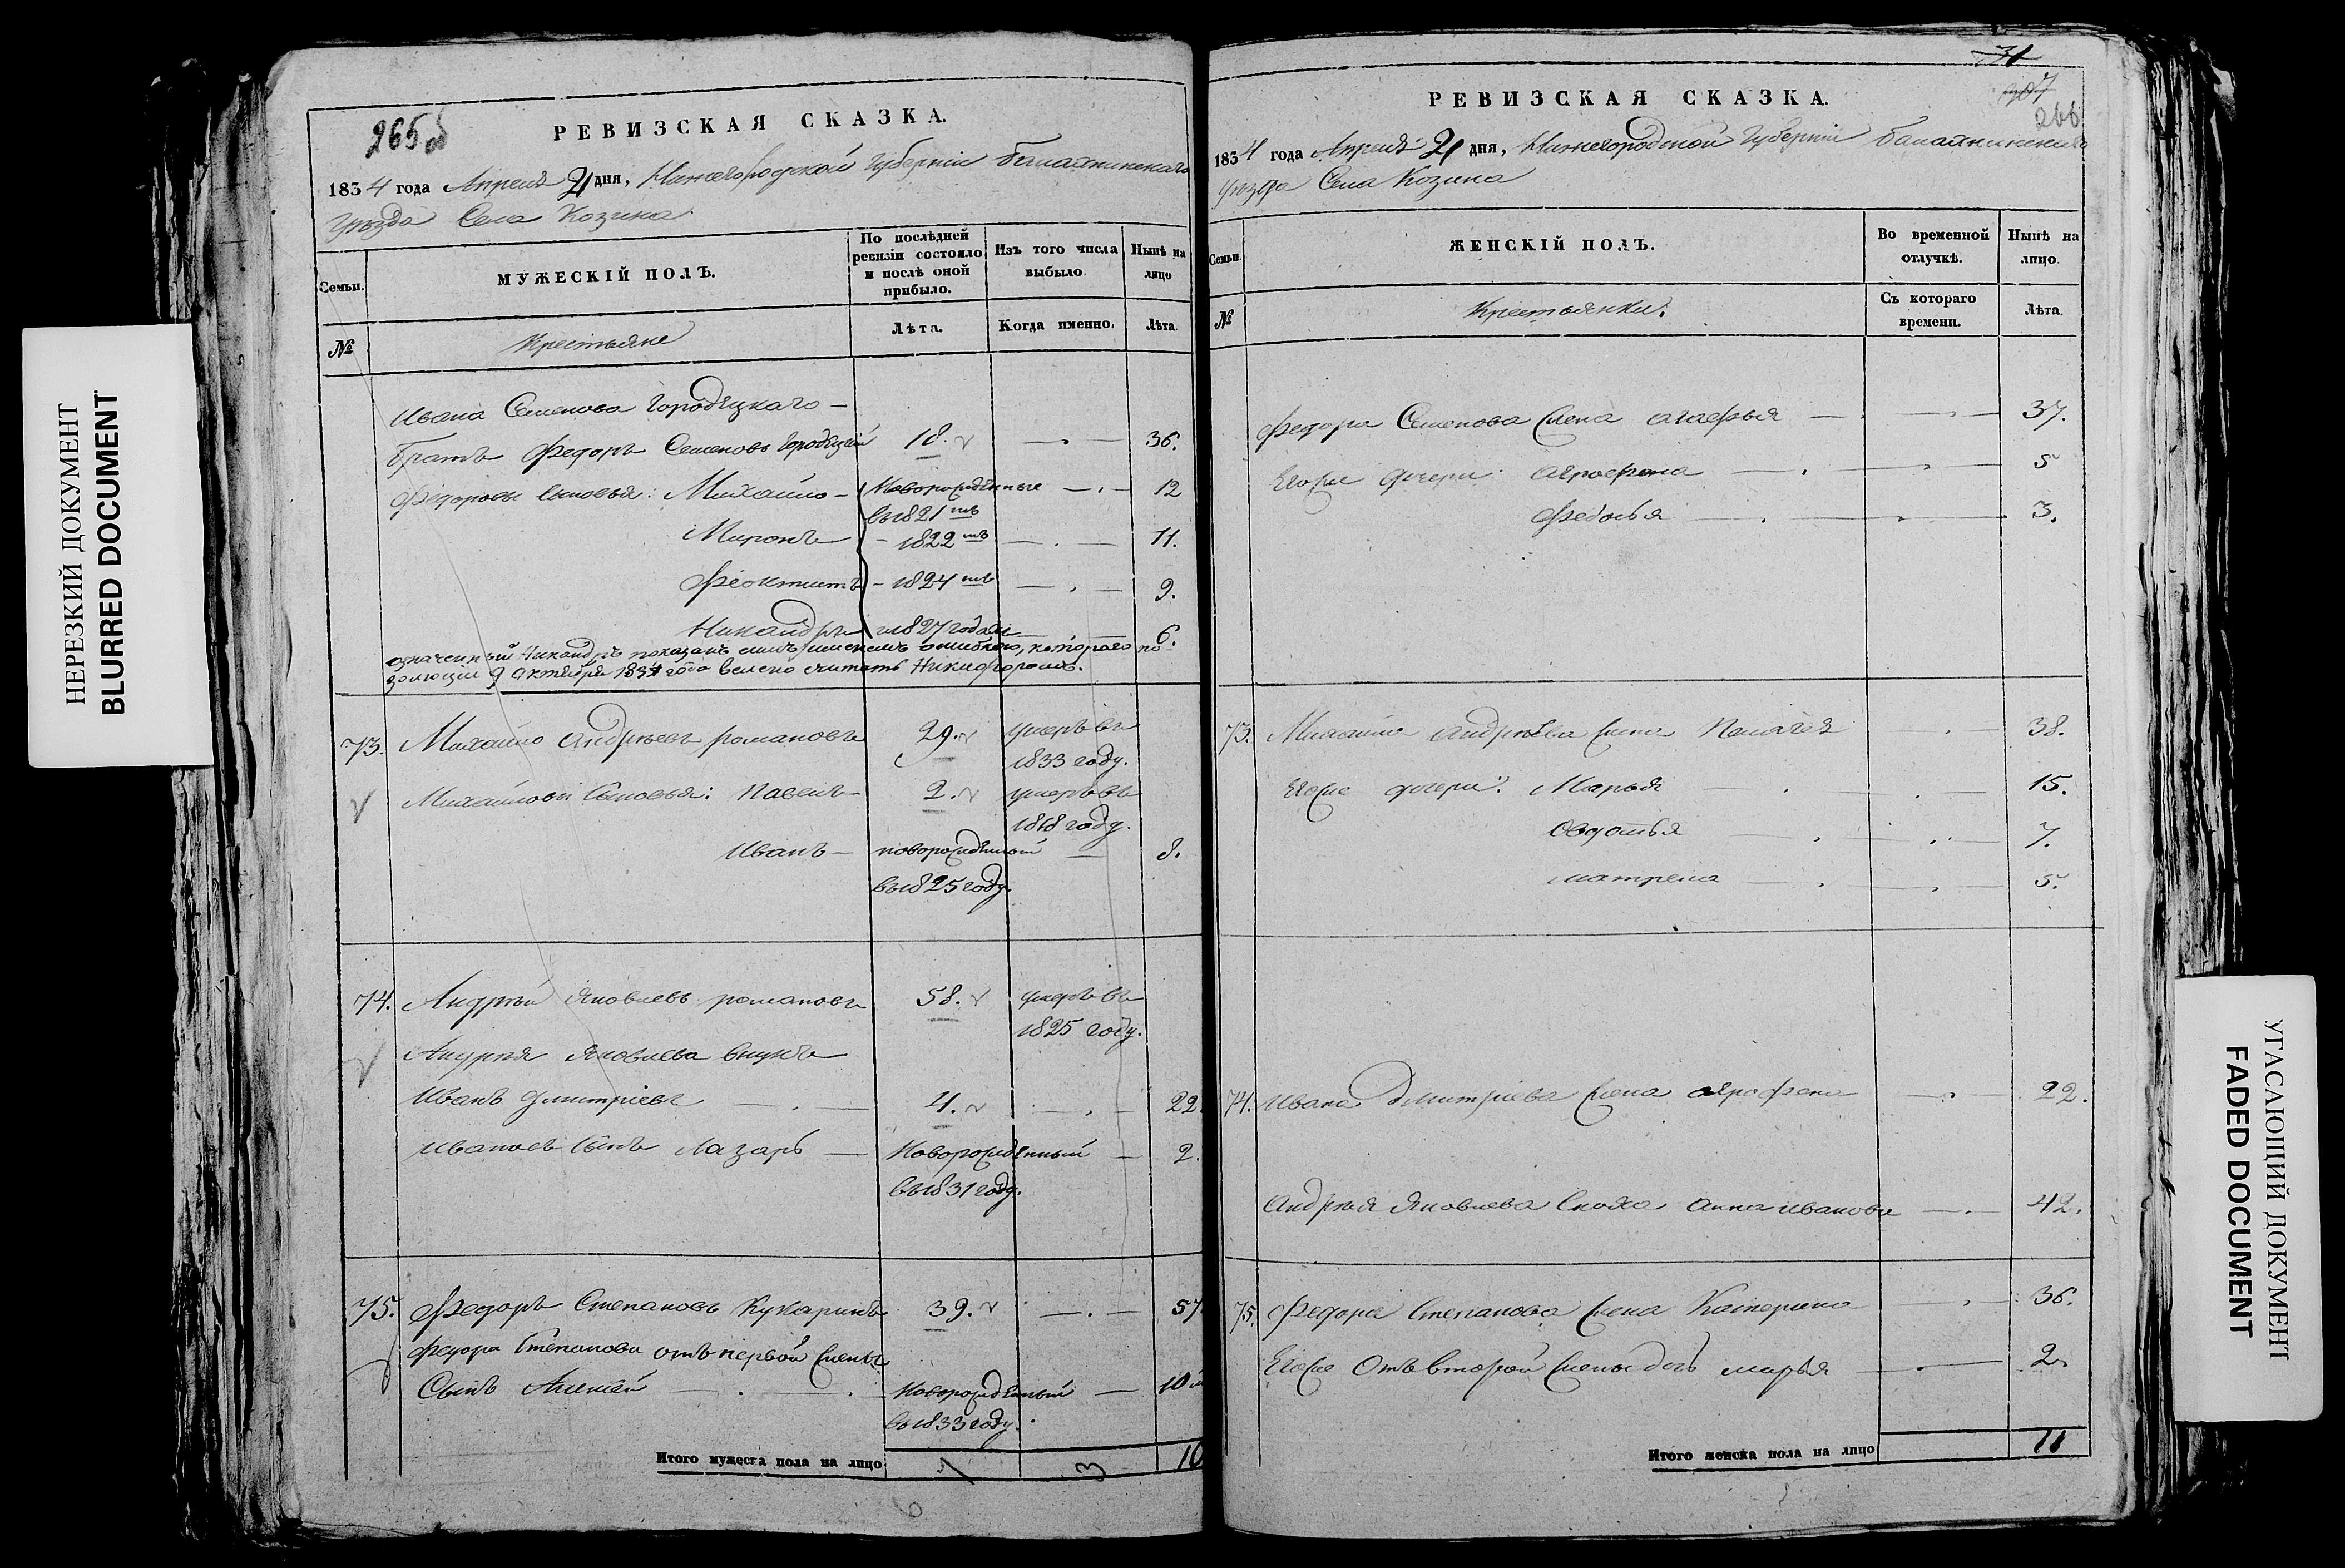 НЕРЕЗКИЙ ДОКУМЕНТ
BLURRED DOCUMENT
265об
РЕВИЗСКАЯ СКАЗКА.
1834 года Апреля 21 дня, Нижегородской Губернiи Балахнинскаго
уѣзда Села Козина
Семьи.
МУЖЕСКІЙ ПОЛЪ.
По послѣдней ревизіи состояло и послѣ оной прибыло.
Изъ того числа выбыло.
Нынѣ на лицо
№
Крестьяне
Лѣта.
Когда именно.
Лѣта
Ивана Семенова Городецкаго —
братъ Федоръ Семеновъ Городецкій 18. — 36.
Федоровы сыновья: Михайло — Новорожденные — 12
въ 1821мъ
Миронъ — 1822мъ — 11.
Феоктистъ — 1824мъ — 9.
Никандръ и 1827 годахъ — 6.
означенный Никандръ показанъ симъ именемъ ошибкою, котораго по
золюціи 9 Октября 1834 года велено считать Никифоромъ.
73. Михайло Андреевъ романовъ 29. умеръ въ
1833 году.
Михайловы сыновья: Павелъ 2. умеръ въ
1818 году.
Иванъ — новорожденный — 8.
въ 1825 году.
74. Андрѣй Яковлевъ романовъ 58. умеръ въ
1825 году.
Андрѣя Яковлева внукъ
Иванъ Дмитріевъ — 4. — 22.
Ивановъ сынъ Лазарь — Новорожденный — 2.
въ 1831 году.
75. Федоръ Степановъ Кукаринъ 39. — 57
Федора Степанова отъ первой жены
Сынъ Алексѣй — Новорожденный — 10 м
въ 1833 году.
Итого мужеска пола на лицо 7 3 10
31
107
266
РЕВИЗСКАЯ СКАЗКА.
1834 года Апреля 21 дня, Нижегородской Губерніи Балахнинскаго
уѣзда Села Козина
Семьи.
ЖЕНСКІЙ ПОЛЪ.
Во временной отлучкѣ.
Нынѣ на лицо.
№
Крестьянки.
Съ котораго времени.
Лѣта
Федора Семенова жена Агафья — 37.
Егоже дочери: Агрофена — 5
Федосья — 3.
73. Михайла Андрѣева жена Пелагея — 38.
Егоже дочери: Марья — 15.
Овдотья — 7.
матрена — 5.
74. Ивана Дмитріева жена Агрофена — 22.
Андрѣя Яковлева сноха Анна иванова — 42.
75. Федора Степанова жена Катерина — 36.
Егоже отъ второй жены дочь марья — 2.
Итого женска пола на лицо 11
УГАСАЮЩИЙ ДОКУМЕНТ
FADED DOCUMENT